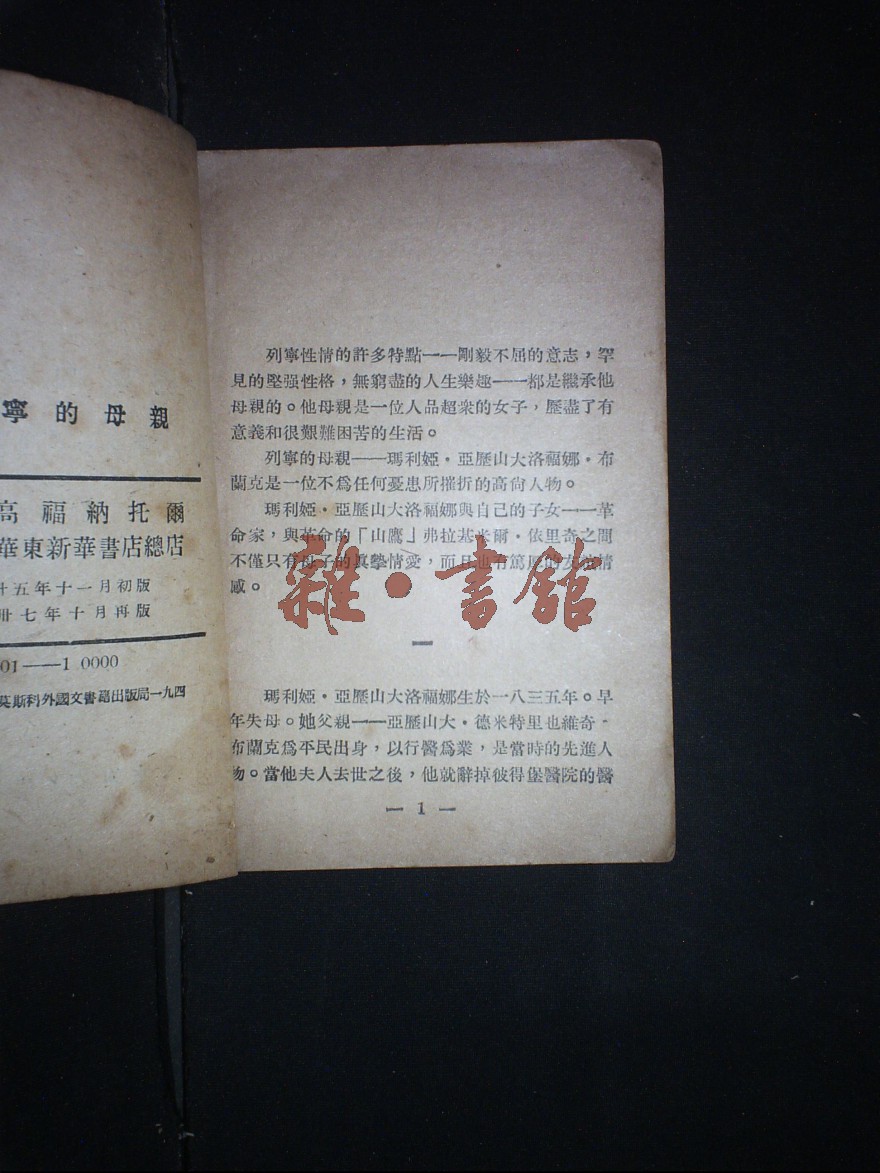 寧的母親
高福納托爾
華東新華書店總店
卅五年十一月初版
卅七年十月再版
01——1 0000
莫斯科外國文書籍出版局一九四
列寧性情的許多特點——剛毅不屈的意志，罕
見的堅强性格，無窮盡的人生樂趣——都是繼承他
母親的。他母親是一位人品超衆的女子，歷盡了有
意義和很艱難困苦的生活。
列寧的母親——瑪利婭·亞歷山大洛福娜·布
蘭克是一位不爲任何憂患所摧折的高尙人物。
瑪利婭·亞歷山大洛福娜與自己的子女——革
命家，與革命的「山鷹」弗拉基米爾·依里奇之間
不僅只有母子的眞摯情愛，而且也有篤厚的友誼情
感。
雜·書館
一
瑪利婭·亞歷山大洛福娜生於一八三五年。早
年失母。她父親——亞歷山大·德米特里也維奇·
布蘭克爲平民出身，以行醫爲業，是當時的先進人
物。當他夫人去世之後，他就辭掉彼得堡醫院的醫
— 1 —